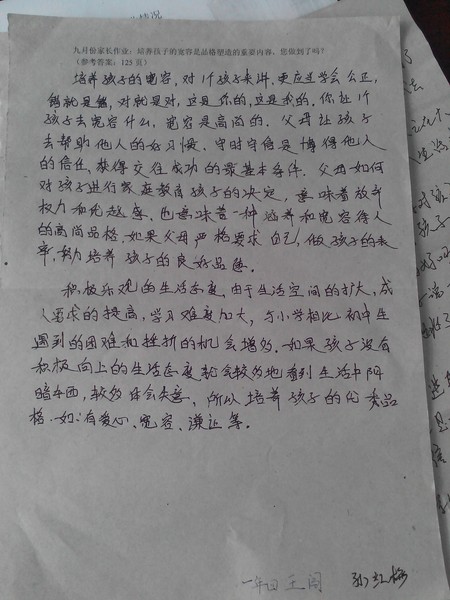 九月份家长作业：培养孩子的宽容是品格塑造的重要内容，您做到了吗？
（参考答案：125页）
培养孩子的宽容，对1个孩子来讲，更应适学会公正，
错就是错，对就是对，这是你的，这是我的，你让1个
孩子去宽容什么，宽容是高尚的．父母让孩子
去帮助他人的好习惯．守时守信是博得他人
的信任、获得交往成功的最基本条件．父母如何
对孩子进行家庭教育孩子的决定，意味着放弃
权力和优越感、也意味着一种培养和宽容待人
的高尚品格．如果父母严格要求自己，做孩子的表
率，努力培养孩子的良好品德。
积极乐观的生活态度，由于生活空间的扩大，成
人要求的提高，学习难度加大，与小学相比初中生
遇到的困难和挫折的机会增多．如果孩子没有
积极向上的生活态度就会较多地看到生活中阴
暗东西，较多体会失意，所以培养孩子的优秀品
格．如：有爱心、宽容、谦让等．
一年四 王闯 孙红梅